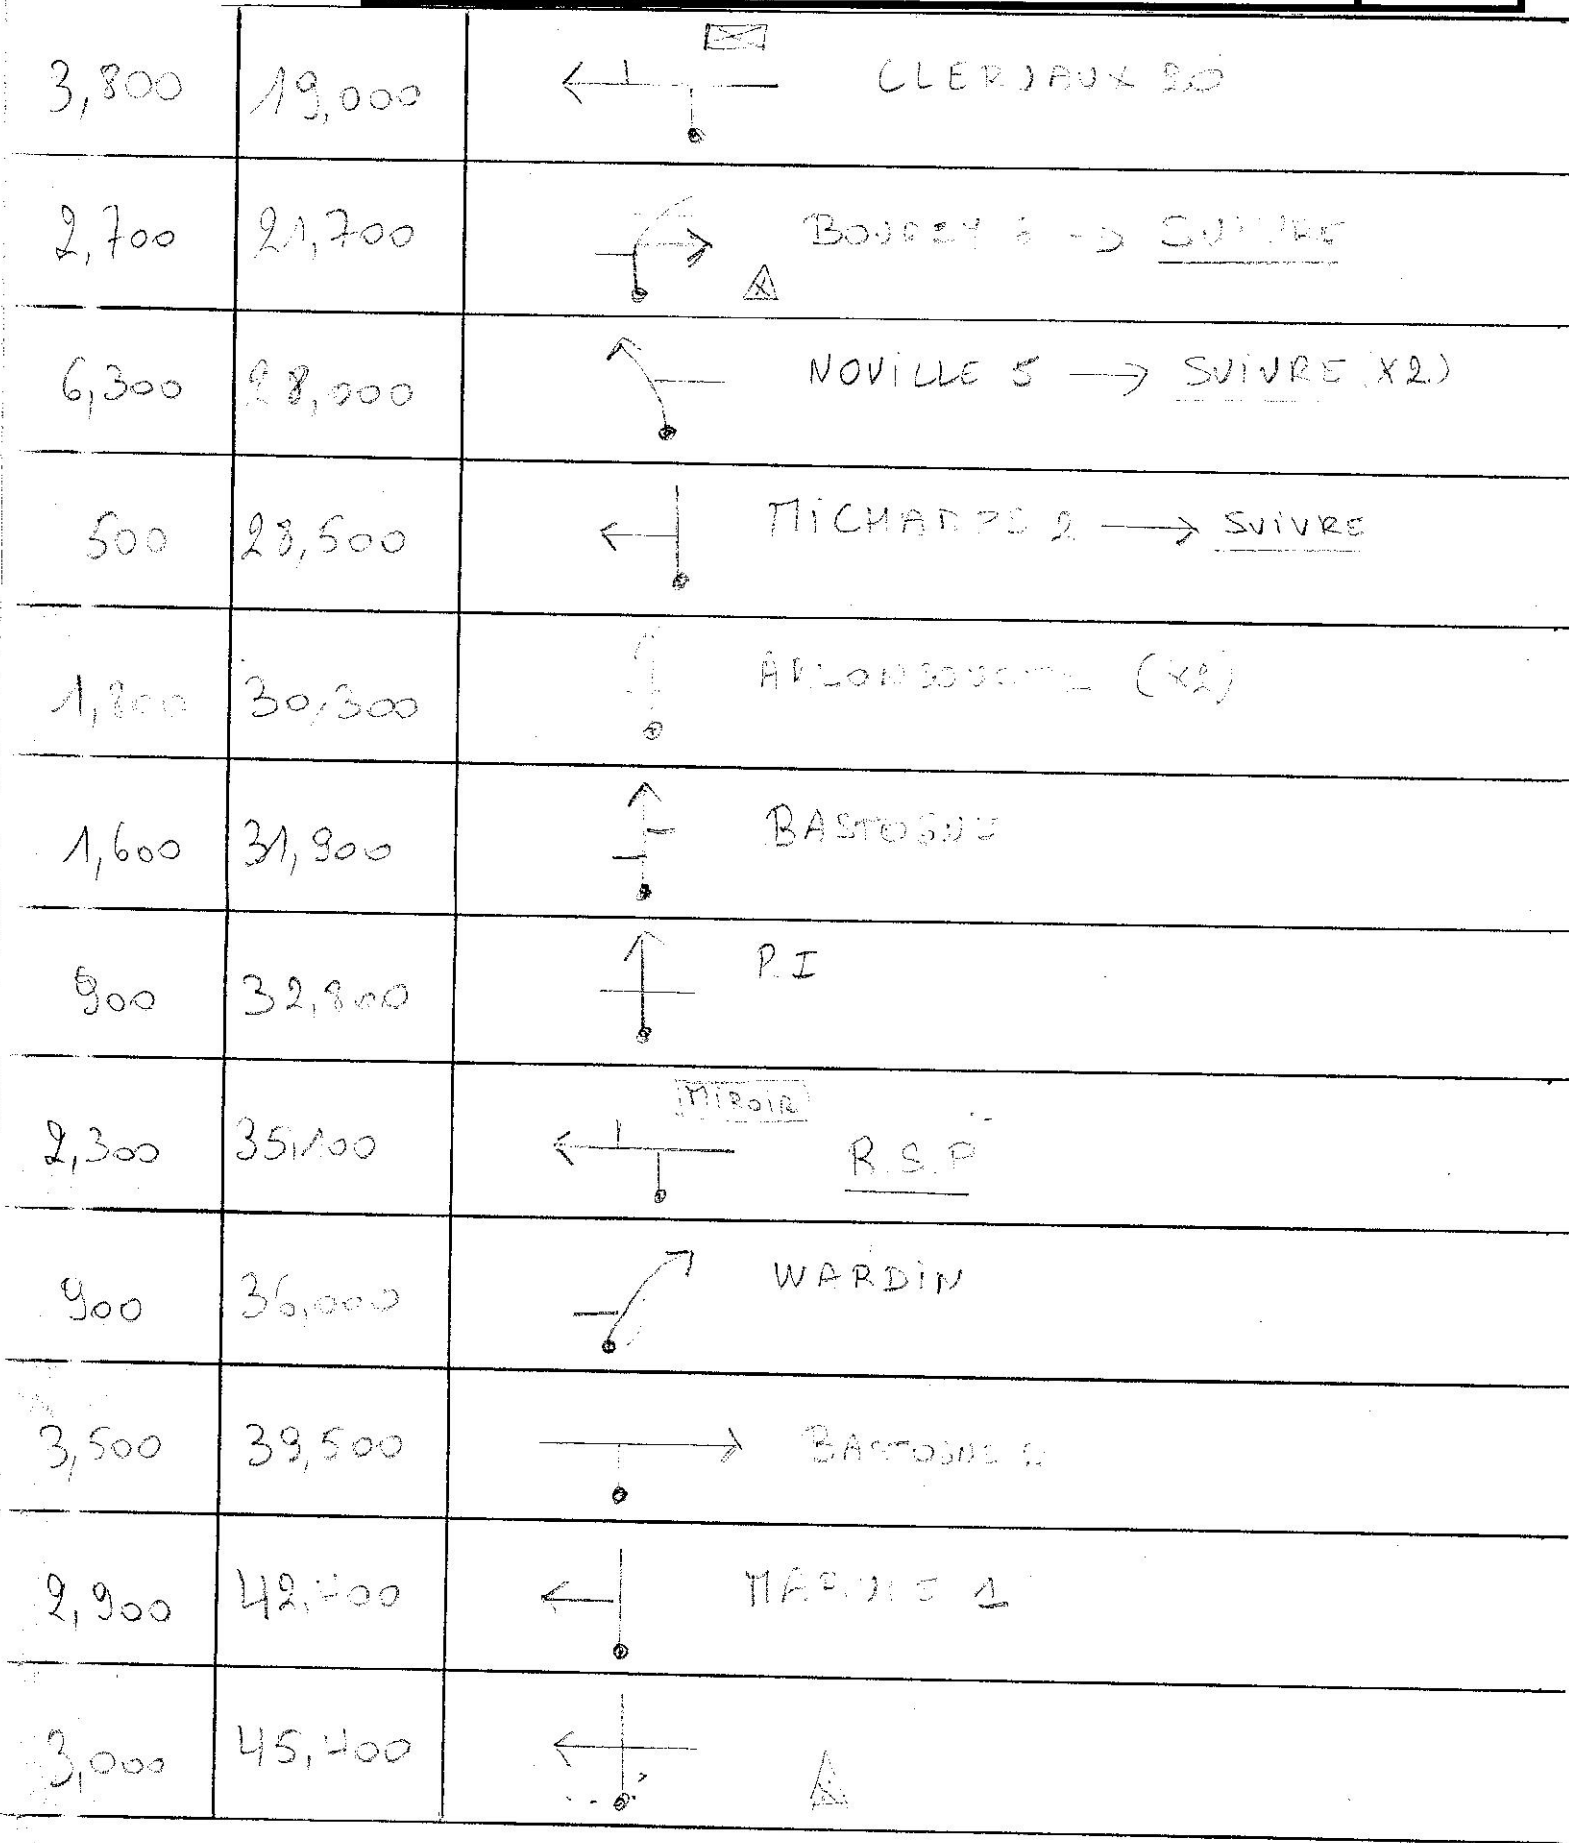 3,800 19,000 CLERVAUX 20
2,700 21,700 BOURCY → SUIVRE
6,300 28,000 NOVILLE 5 → SUIVRE (X2)
500 28,500 MICHAMPS 2 → SUIVRE
1,800 30,300 (X2)
1,600 31,900 BASTOGNE
900 32,800 P.I
MIROIR
2,300 35,100 R.S.P
900 36,000 WARDIN
3,500 39,500 BASTOGNE
2,900 42,400 MARVIE 1
3,000 45,400